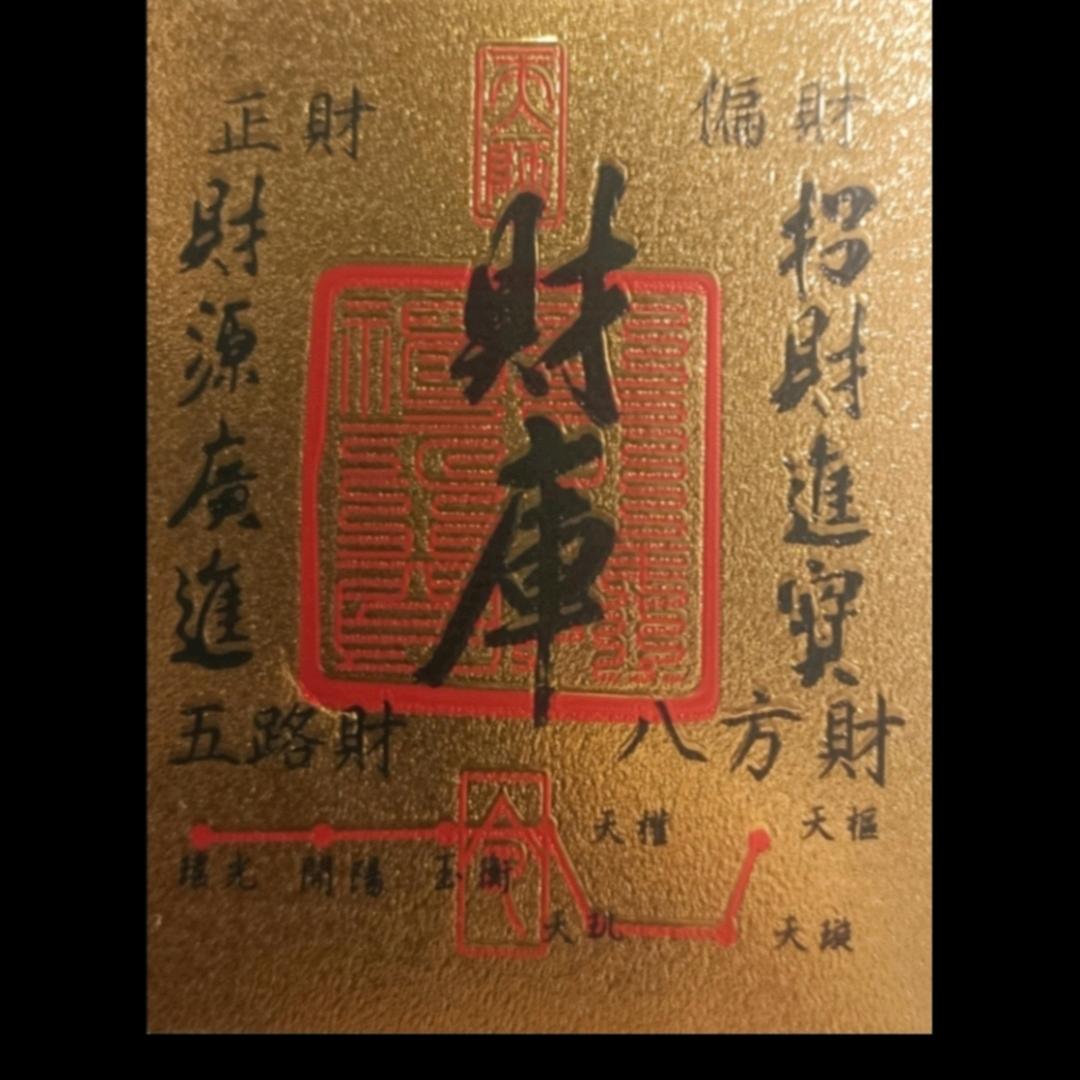 天師
正財
偏財
財庫
招財進寳
財源廣進
五路財
八方財
天權
天樞
瑤光
開陽
玉衡
天璇
天璣
令